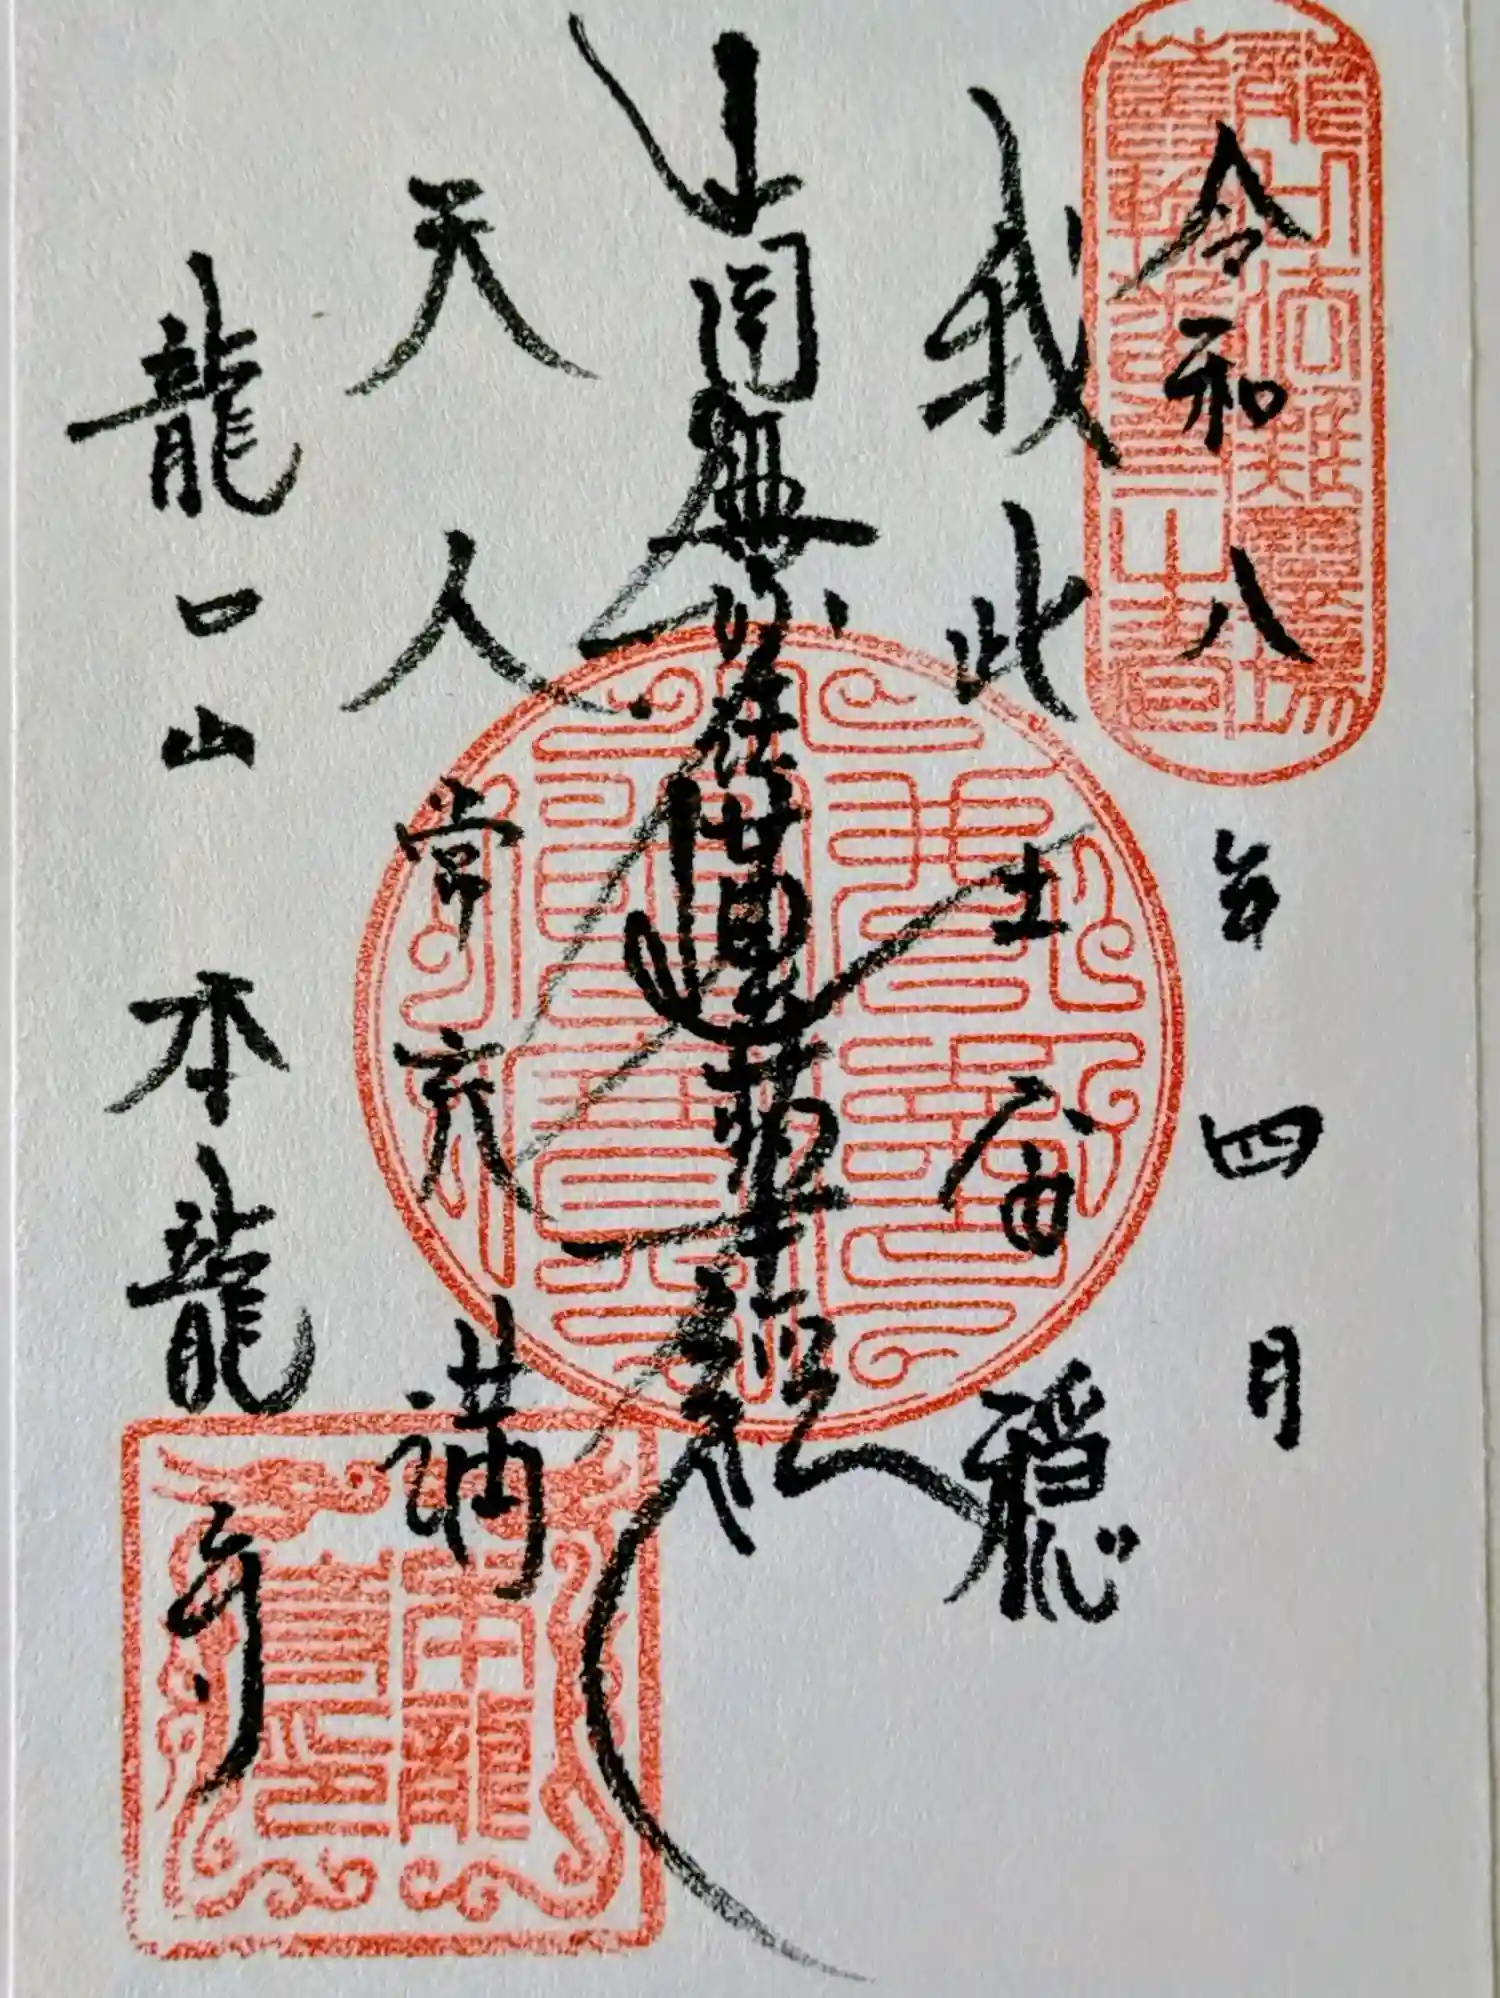 龍口法難靈場
令和八年四月
我此土安穏
南無妙法蓮華経
天人常充満
龍口山本龍寺